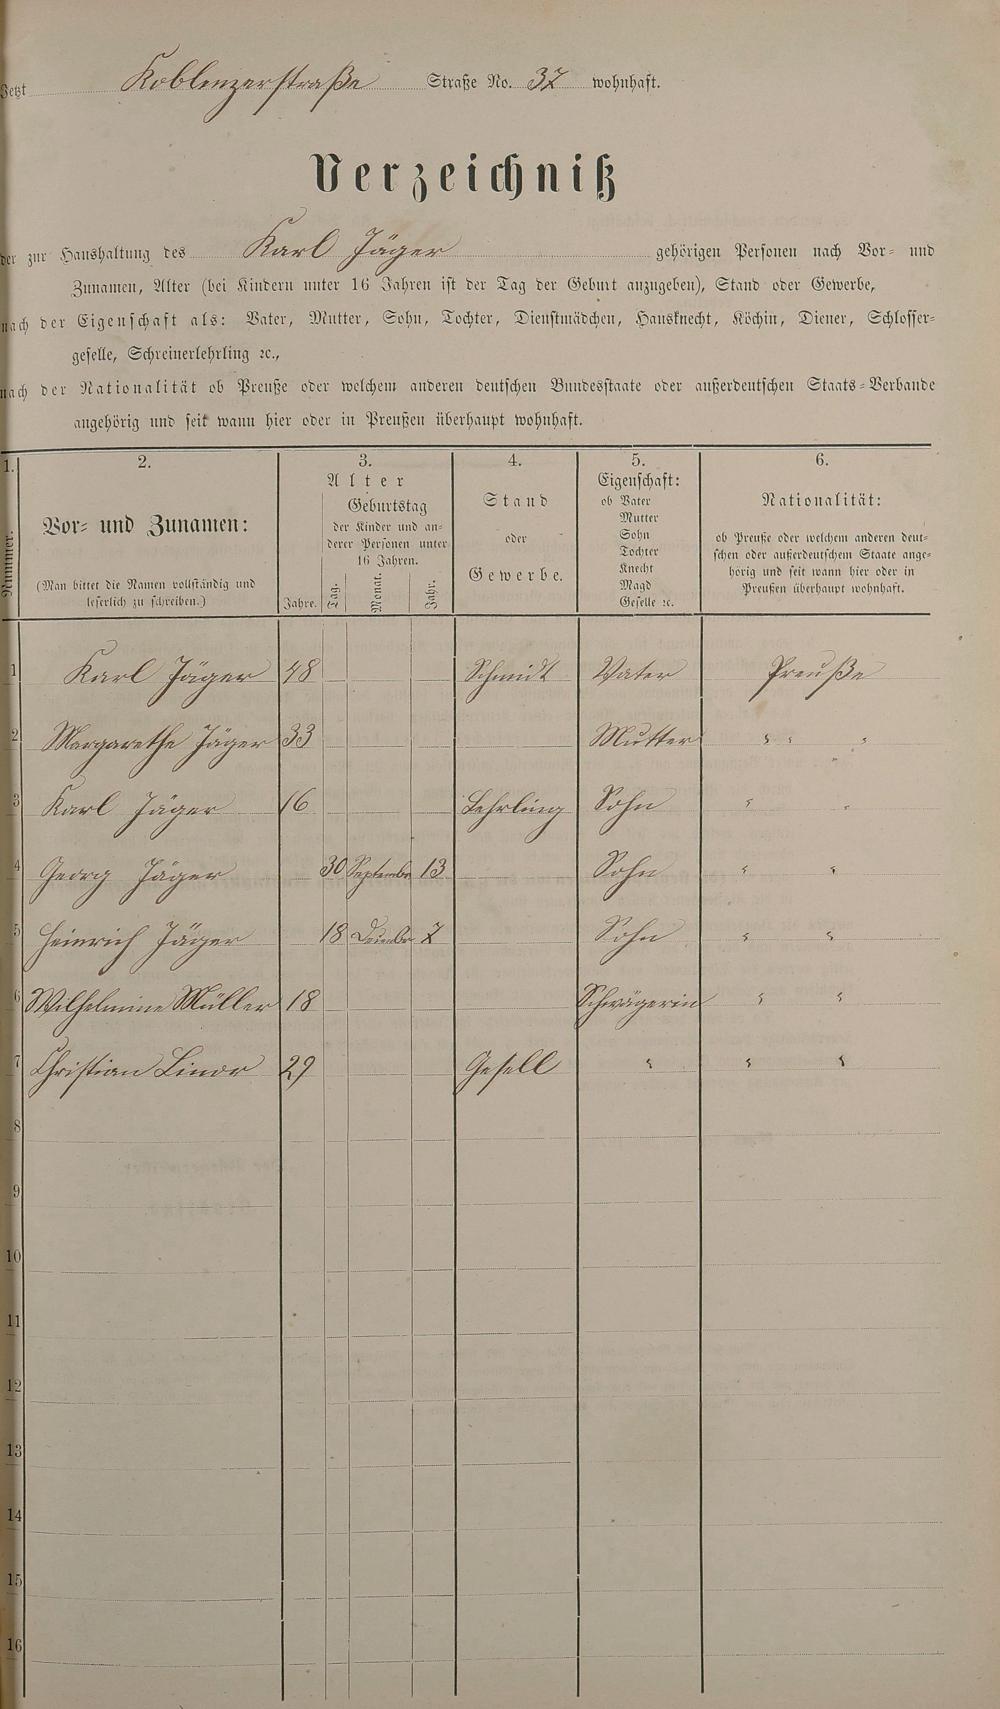 Jetzt Koblenzerstraße Straße No. 37 wohnhaft.
Verzeichniß
der zur Haushaltung des Karl Jäger gehörigen Personen nach Vor- und
Zunamen, Alter (bei Kindern unter 16 Jahren ist der Tag der Geburt anzugeben), Stand oder Gewerbe,
nach der Eigenschaft als: Vater, Mutter, Sohn, Tochter, Dienstmädchen, Hausknecht, Köchin, Diener, Schlosser-
geselle, Schreinerlehrling ꝛc.,
nach der Nationalität ob Preuße oder welchem anderen deutschen Bundesstaate oder außerdeutschen Staats-Verbande
angehörig und seit wann hier oder in Preußen überhaupt wohnhaft.
1. 2. 3. 4. 5. 6.
Nummer.
Vor- und Zunamen:
(Man bittet die Namen vollständig und
leserlich zu schreiben.)
Alter
Jahre.
Geburtstag
der Kinder und an-
derer Personen unter
16 Jahren.
Tag. Monat. Jahr.
Stand
oder
Gewerbe.
Eigenschaft:
ob Vater
Mutter
Sohn
Tochter
Knecht
Magd
Geselle ꝛc.
Nationalität:
ob Preuße oder welchem anderen deut-
schen oder außerdeutschem Staate ange-
hörig und seit wann hier oder in
Preußen überhaupt wohnhaft.
1 Karl Jäger 48 Schmidt Vater Preuße
2 Margarethe Jäger 33 Mutter " " "
3 Karl Jäger 16 Lehrling Sohn " "
4 Georg Jäger 30 September 13 Sohn " "
5 Heinrich Jäger 18 December 7 Sohn " "
6 Wilhelmine Müller 18 Schwägerin " "
7 Christian 29 Gesell " " "
8
9
10
11
12
13
14
15
16